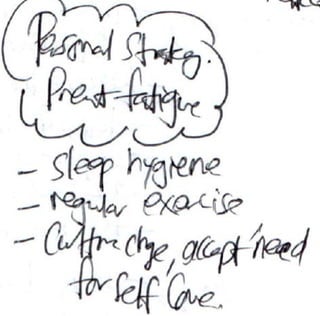 Personal Strategy.
Prevent fatigue
- sleep hygiene
- regular exercise
- Culture chge, accept need
for self Care.